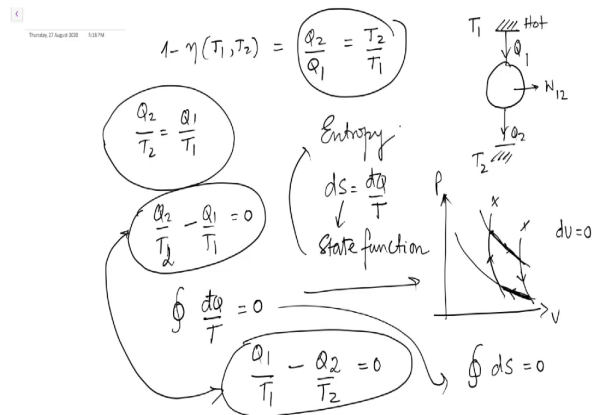 Thursday, 27 August 2020 5:18 PM
1 - η(T₁,T₂) = Q₂/Q₁ = T₂/T₁
T₁ Hot
Q₁
W₁₂
Q₂
T₂
Q₂/T₂ = Q₁/T₁
Entropy.
dS = đQ/T
State function
Q₂/T₂ - Q₁/T₁ = 0
P
x x
dU=0
V
∮ đQ/T = 0
Q₁/T₁ - Q₂/T₂ = 0
∮ dS = 0